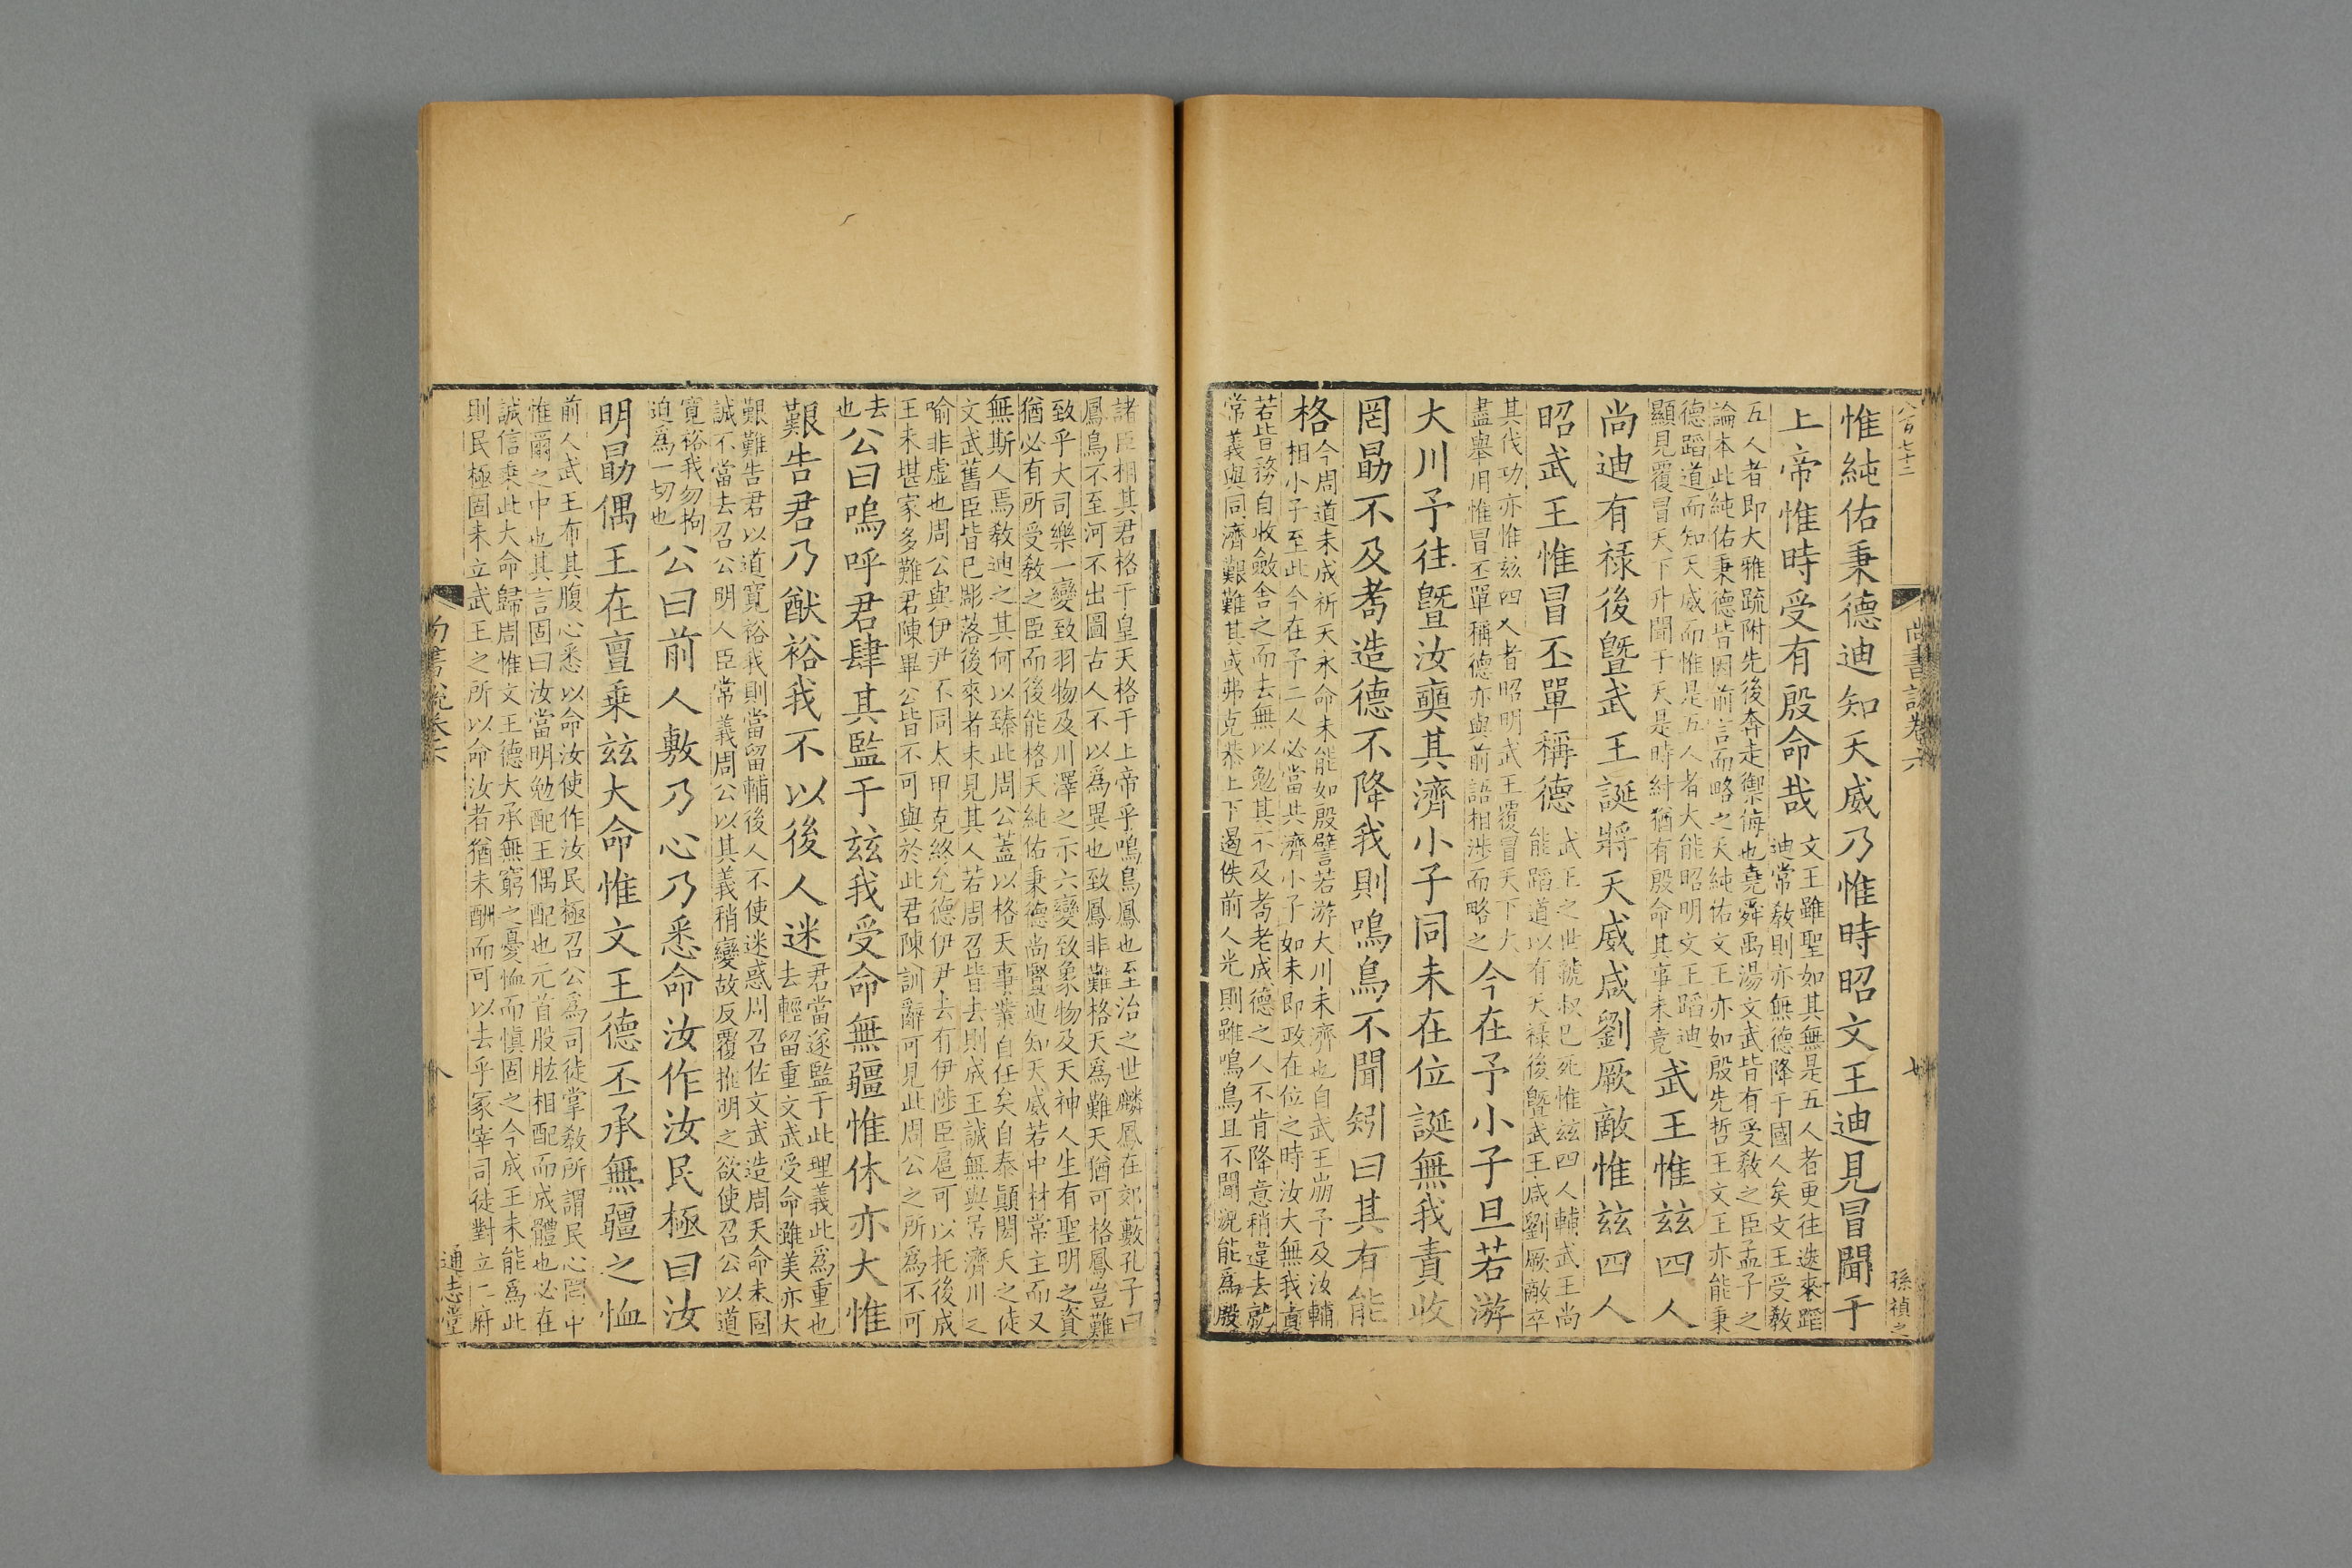 尚書說卷六
惟純佑秉德迪知天威乃惟時昭文王迪見冒聞于
上帝惟時受有殷命哉
文王雖聖如其無是五人者更往迭來蹈
迪常教則亦無德降于國人矣文王受教
五人者即大雅疏附先後奔走禦侮也堯舜禹湯文武皆有受教之臣孟子之
論本此純佑秉德皆因前言而略之天純佑文王亦如殷先哲王文王亦能秉
德蹈道而知天威而惟是五人者大能昭明文王蹈迪
顯見覆冒天下升聞于天是時紂猶有殷命其事未竟
武王惟茲四人
尚迪有祿後暨武王誕將天威咸劉厥敵惟茲四人
昭武王惟冒丕單稱德
武王之世虢叔已死惟茲四人輔武王尚
能蹈道以有天祿後暨武王咸劉厥敵卒
其伐功亦惟茲四人者昭明武王覆冒天下大
盡舉用惟冒丕單稱德亦與前語相涉而略之
今在予小子旦若游
大川予往暨汝奭其濟小子同未在位誕無我責收
罔勗不及耇造德不降我則鳴鳥不聞矧曰其有能
格
今周道未成祈天永命未能如殷譬若游大川未濟也自武王崩予及汝輔
相小子至此今在予二人必當共濟小子如未即政在位之時汝大無我責
若皆務自收斂舍之而去無以勉其不及耇老成德之人不肯降意稍違去就
常義與同濟艱難其或弗克恭上下遏佚前人光則雖鳴鳥且不聞況能為殷
諸臣相其君格于皇天格于上帝乎鳴鳥鳳也至治之世麟鳳在郊藪孔子曰
鳳鳥不至河不出圖古人不以為異也致鳳非難格天為難天猶可格鳳豈難
致乎大司樂一變致羽物及川澤之示六變致象物及天神人生有聖明之資
猶必有所受教之臣而後能格天純佑秉德尚賢迪知天威若中材常主而又
無斯人焉教迪之其何以臻此周公蓋以格天事業自任矣自泰顛閎夭之徒
文武舊臣皆已彫落後來者未見其人若周召皆去則成王誠無與居濟川之
喻非虛也周公與伊尹不同太甲克終允德伊尹去有伊陟臣扈可以托後成
王未堪家多難君陳畢公皆不可與於此君陳訓辭可見此周公之所為不可
去
也
公曰嗚呼君肆其監于茲我受命無疆惟休亦大惟
艱告君乃猷裕我不以後人迷
君當遂監于此理義此為重也
去輕留重文武受命雖美亦大
艱難告君以道寬裕我則當留輔後人不使迷惑周召佐文武造周天命未固
誠不當去召公明人臣常義周公以其義稍變故反覆推明之欲使召公以道
寬裕我勿拘
迫為一切也
公曰前人敷乃心乃悉命汝作汝民極曰汝
明勗偶王在亶乘茲大命惟文王德丕承無疆之恤
前人武王布其腹心悉以命汝使作汝民極召公為司徒掌教所謂民心罔中
惟爾之中也其言固曰汝當明勉配王偶配也元首股肱相配而成體也必在
誠信乘此大命歸周惟文王德大承無窮之憂恤而慎固之今成王未能為此
則民極固未立武王之所以命汝者猶未酬而可以去乎冢宰司徒對立二府
尚書說卷六
通志堂